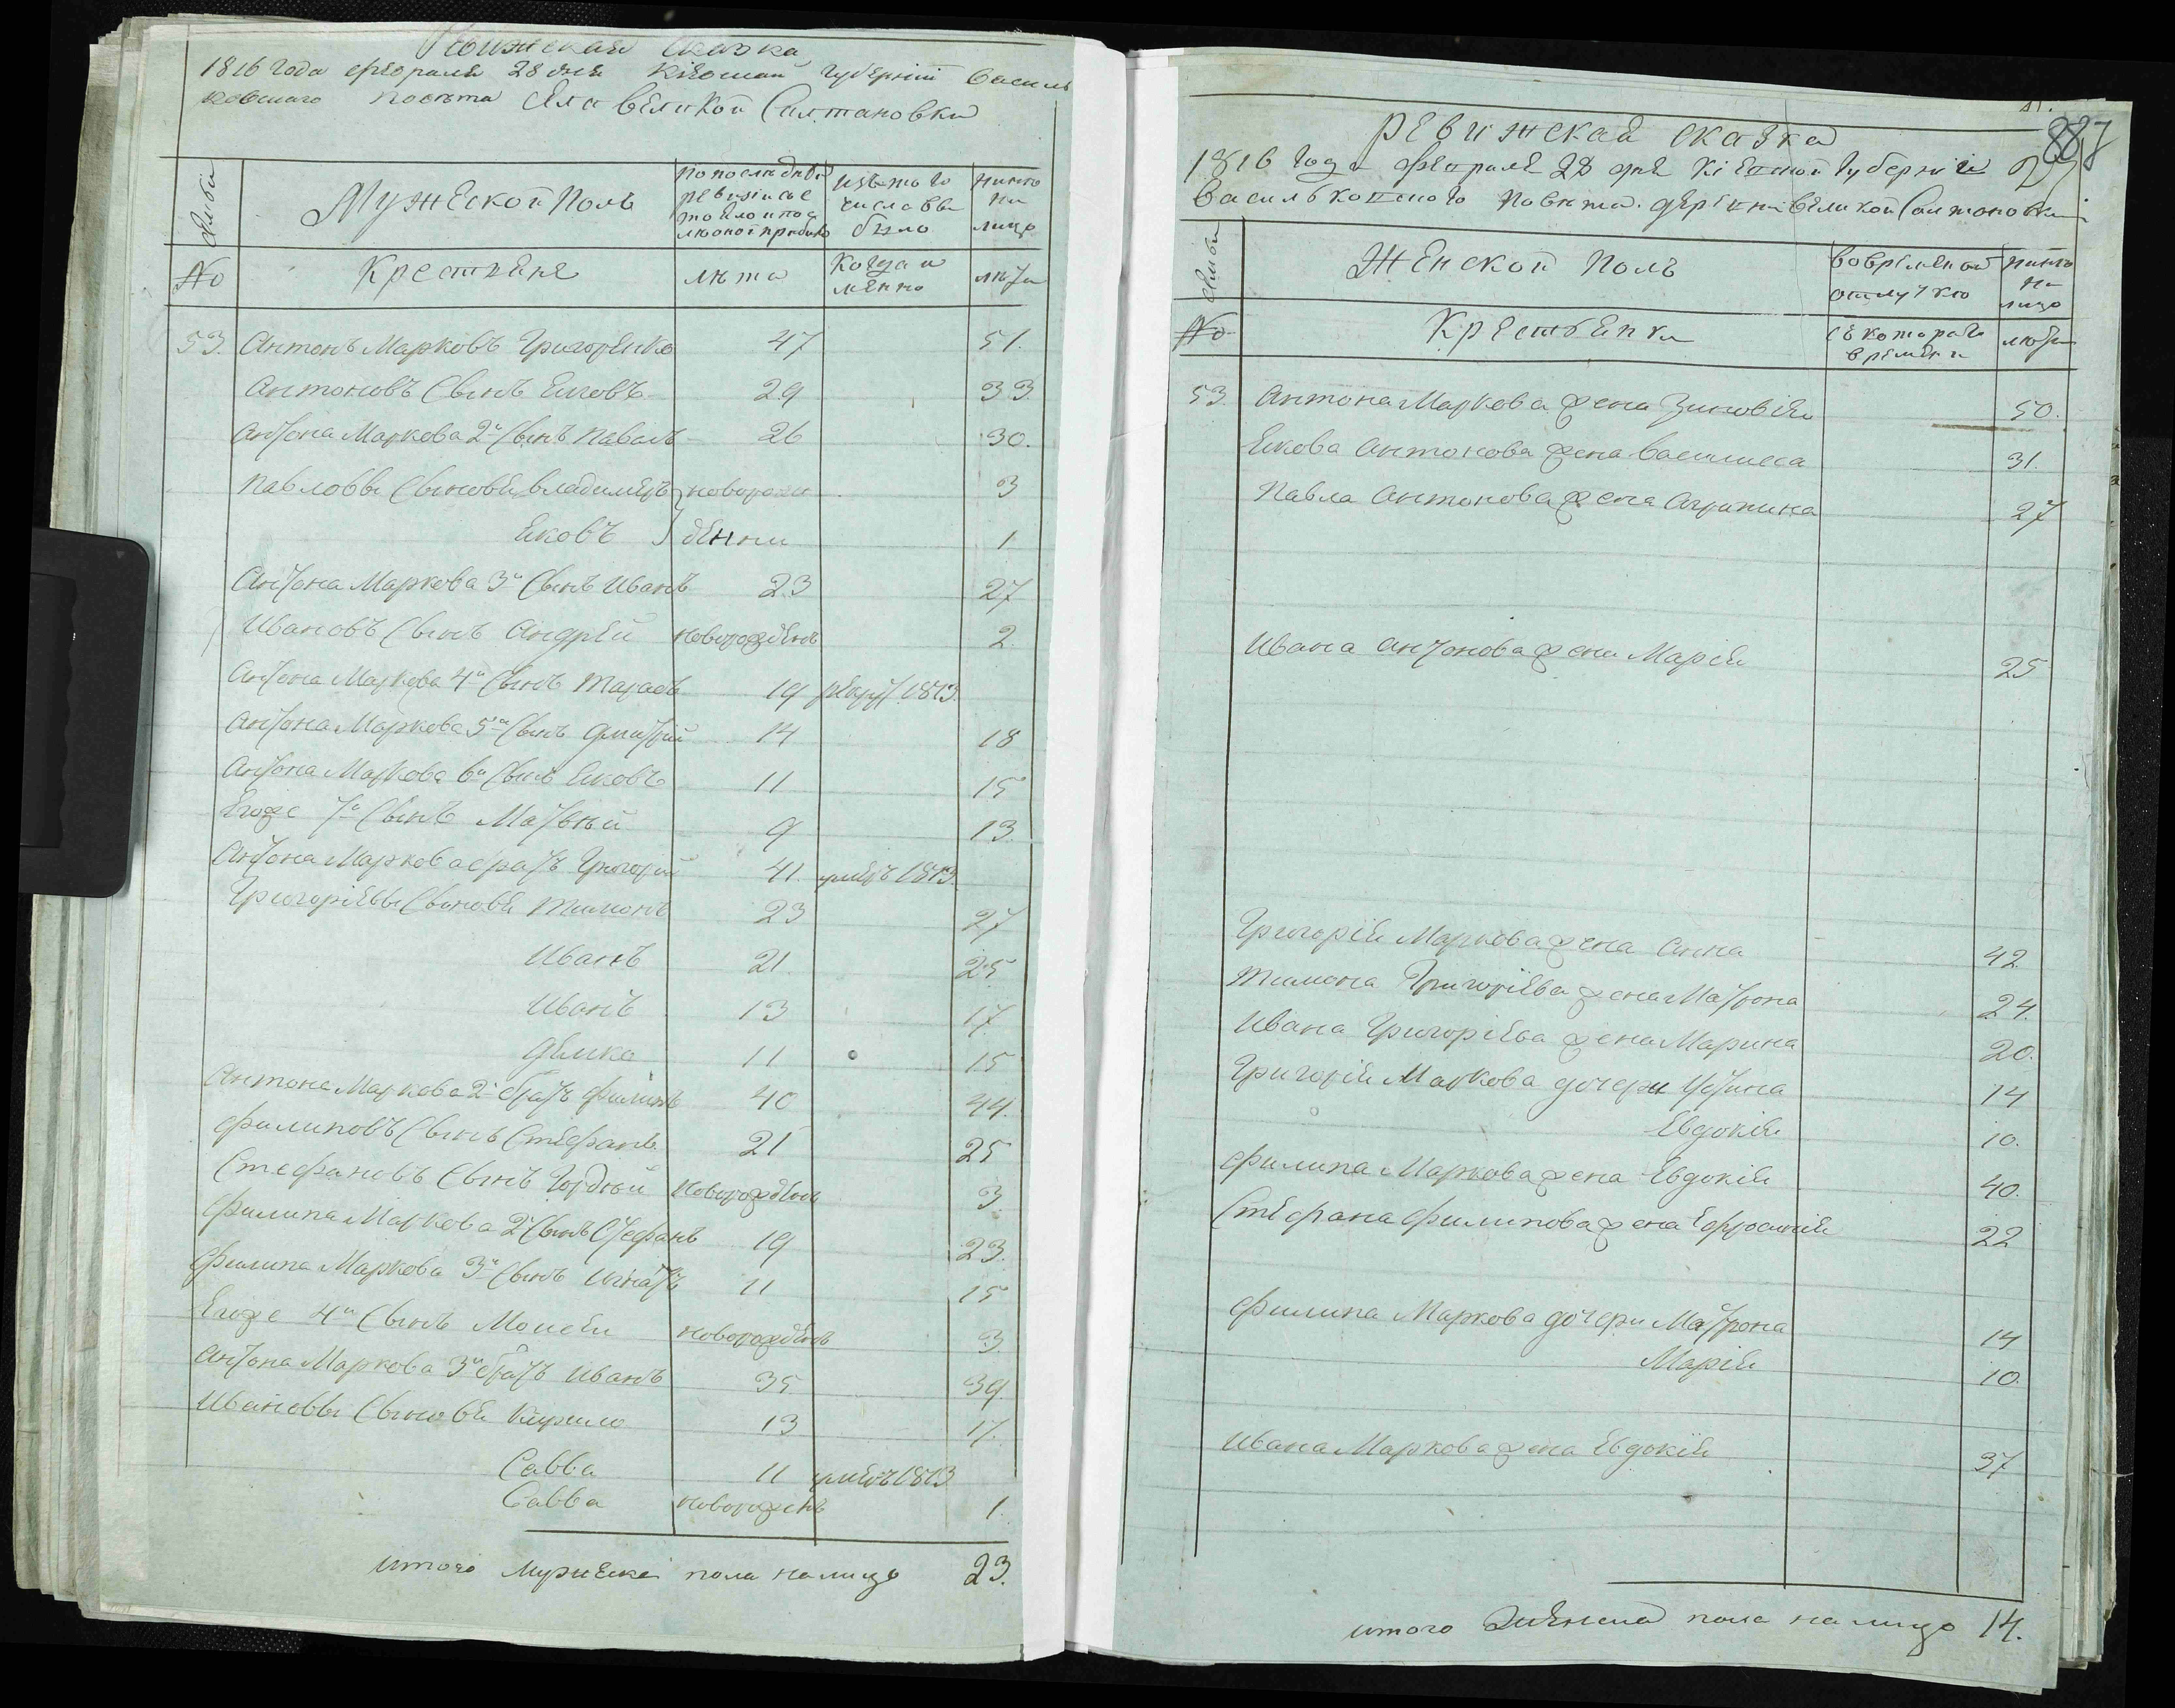 Ревижская сказка
1816 года февраля 28 дня Кіевской губерніи Василь
ковскаго повѣта села великой Салтановки
Мужеской Полъ
по последней
ревизіи со
стояло и по
изъ того
числа вы
было
нынѣ
на
лицо
No
Крестьяне
лѣта
когда и
менно
лѣта
53. Антонъ Марковъ Григоренко 47 51.
Антоновъ Сынъ Яковъ 29 33
Антона Маркова 2й Сынъ Павелъ 26 30.
Павловы Сыновья Владимеръ новорож 3
Яковъ денни 1
Антона Маркова 3й Сынъ Иванъ 23 27
Ивановъ Сынъ Андрей новорожденъ 2.
Антона Маркова 4й Сынъ Тарасъ 19 рекрут 1813.
Антона Маркова 5й Сынъ Дмитрій 14 18
Антона Маркова 6й Сынъ Яковъ 11 15
Егоже 7й Сынъ Матвѣй 9 13.
Антона Маркова братъ Григорій 41. умеръ 1813.
Григоріевы Сыновья Тимонъ 23 27
Иванъ 21. 25
Иванъ 13 17
Демко 11 15
Антона Маркова 2й братъ Филипъ 40 44.
Филиповъ Сынъ Стефанъ 21 25
Стефановъ Сынъ Гордѣй новорожденъ 3.
Филипа Маркова 2й Сынъ Стефанъ 19 23.
Филипа Маркова 3й Сынъ Игнатъ 11 15
Егоже 4й Сынъ Моисей новорожденъ 3.
Антона Маркова 3й братъ Иванъ 35 39.
Ивановы Сыновья Кирило 13 17.
Савва 11 умеръ 1813
Савва новорожденъ 1.
итого мужеска пола налицо 23.
887
ревижская сказка
1816 года февраля 28 дня Кіевской губерніи
Васильковского повѣта деревни великой Салтановки
Женской Полъ
во временной
отлучкѣ
нынѣ
на
лицо
No
Крестьянки
съ котораго
времени
лѣта
53. Антона Маркова жена Зиновія 50.
Якова Антонова жена Василиса 31.
Павла Антонова жена Агрипина 27
Ивана Антонова жена Марія 25
Григорія Маркова жена Анна 42
Тимона Григоріева жена Матрона 24.
Ивана Григоріева жена Марина 20.
Григорія Маркова дочери Устина 14
Евдокія 10.
Филипа Маркова жена Евдокія 40.
Стефана Филипова жена Ефросинія 22
Филипа Маркова дочери Матрона 14
Марія 10.
Ивана Маркова жена Евдокія 37
итого женска пола налицо 14.